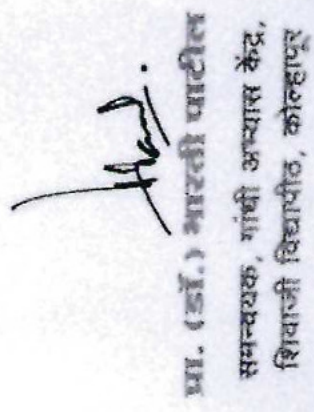 प्रा. (डॉ.) भारती पाटील
समन्वयक, गांधी अभ्यास केंद्र,
शिवाजी विद्यापीठ, कोल्हापूर